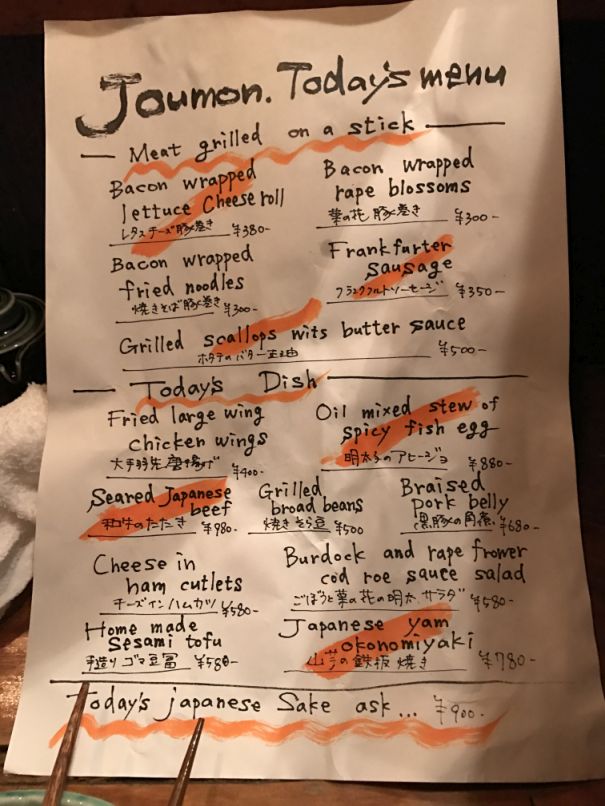 Joumon. Today's menu
Meat grilled on a stick
Bacon wrapped
lettuce Cheese roll
レタスチーズ豚巻き ¥380-
Bacon wrapped
rape blossoms
菜の花豚巻き ¥300-
Bacon wrapped
fried noodles
焼きそば豚巻き ¥300-
Frankfurter
sausage
フランクフルトソーセージ ¥350-
Grilled scallops wits butter sauce
ホタテのバター ¥500-
Today's Dish
Fried large wing
chicken wings
大手羽先唐揚げ ¥400-
Oil mixed stew of
spicy fish egg
明太子のアヒージョ ¥880-
Seared Japanese
beef
和牛のたたき ¥980-
Grilled
broad beans
焼きそら豆 ¥500
Braised
pork belly
黒豚の角煮 ¥680-
Cheese in
ham cutlets
チーズインハムカツ ¥580-
Burdock and rape frower
cod roe sauce salad
ごぼうと菜の花の明太サラダ ¥580-
Home made
Sesami tofu
手造りゴマ豆冨 ¥580-
Japanese yam
okonomiyaki
山芋の鉄板焼き ¥780-
Today's japanese Sake ask... ¥900-